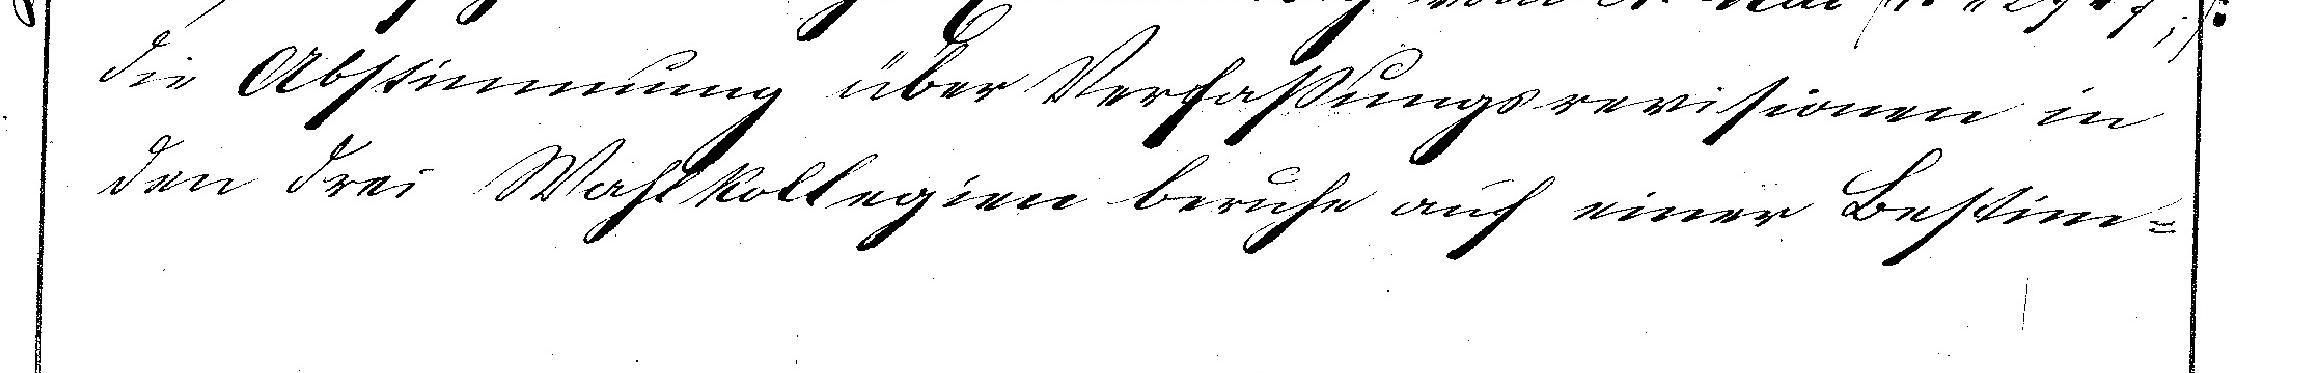 die Abstimmung über Verfaßungsrevisionen in
den drei Wahlkollegien beruhe auf einer Bestim=